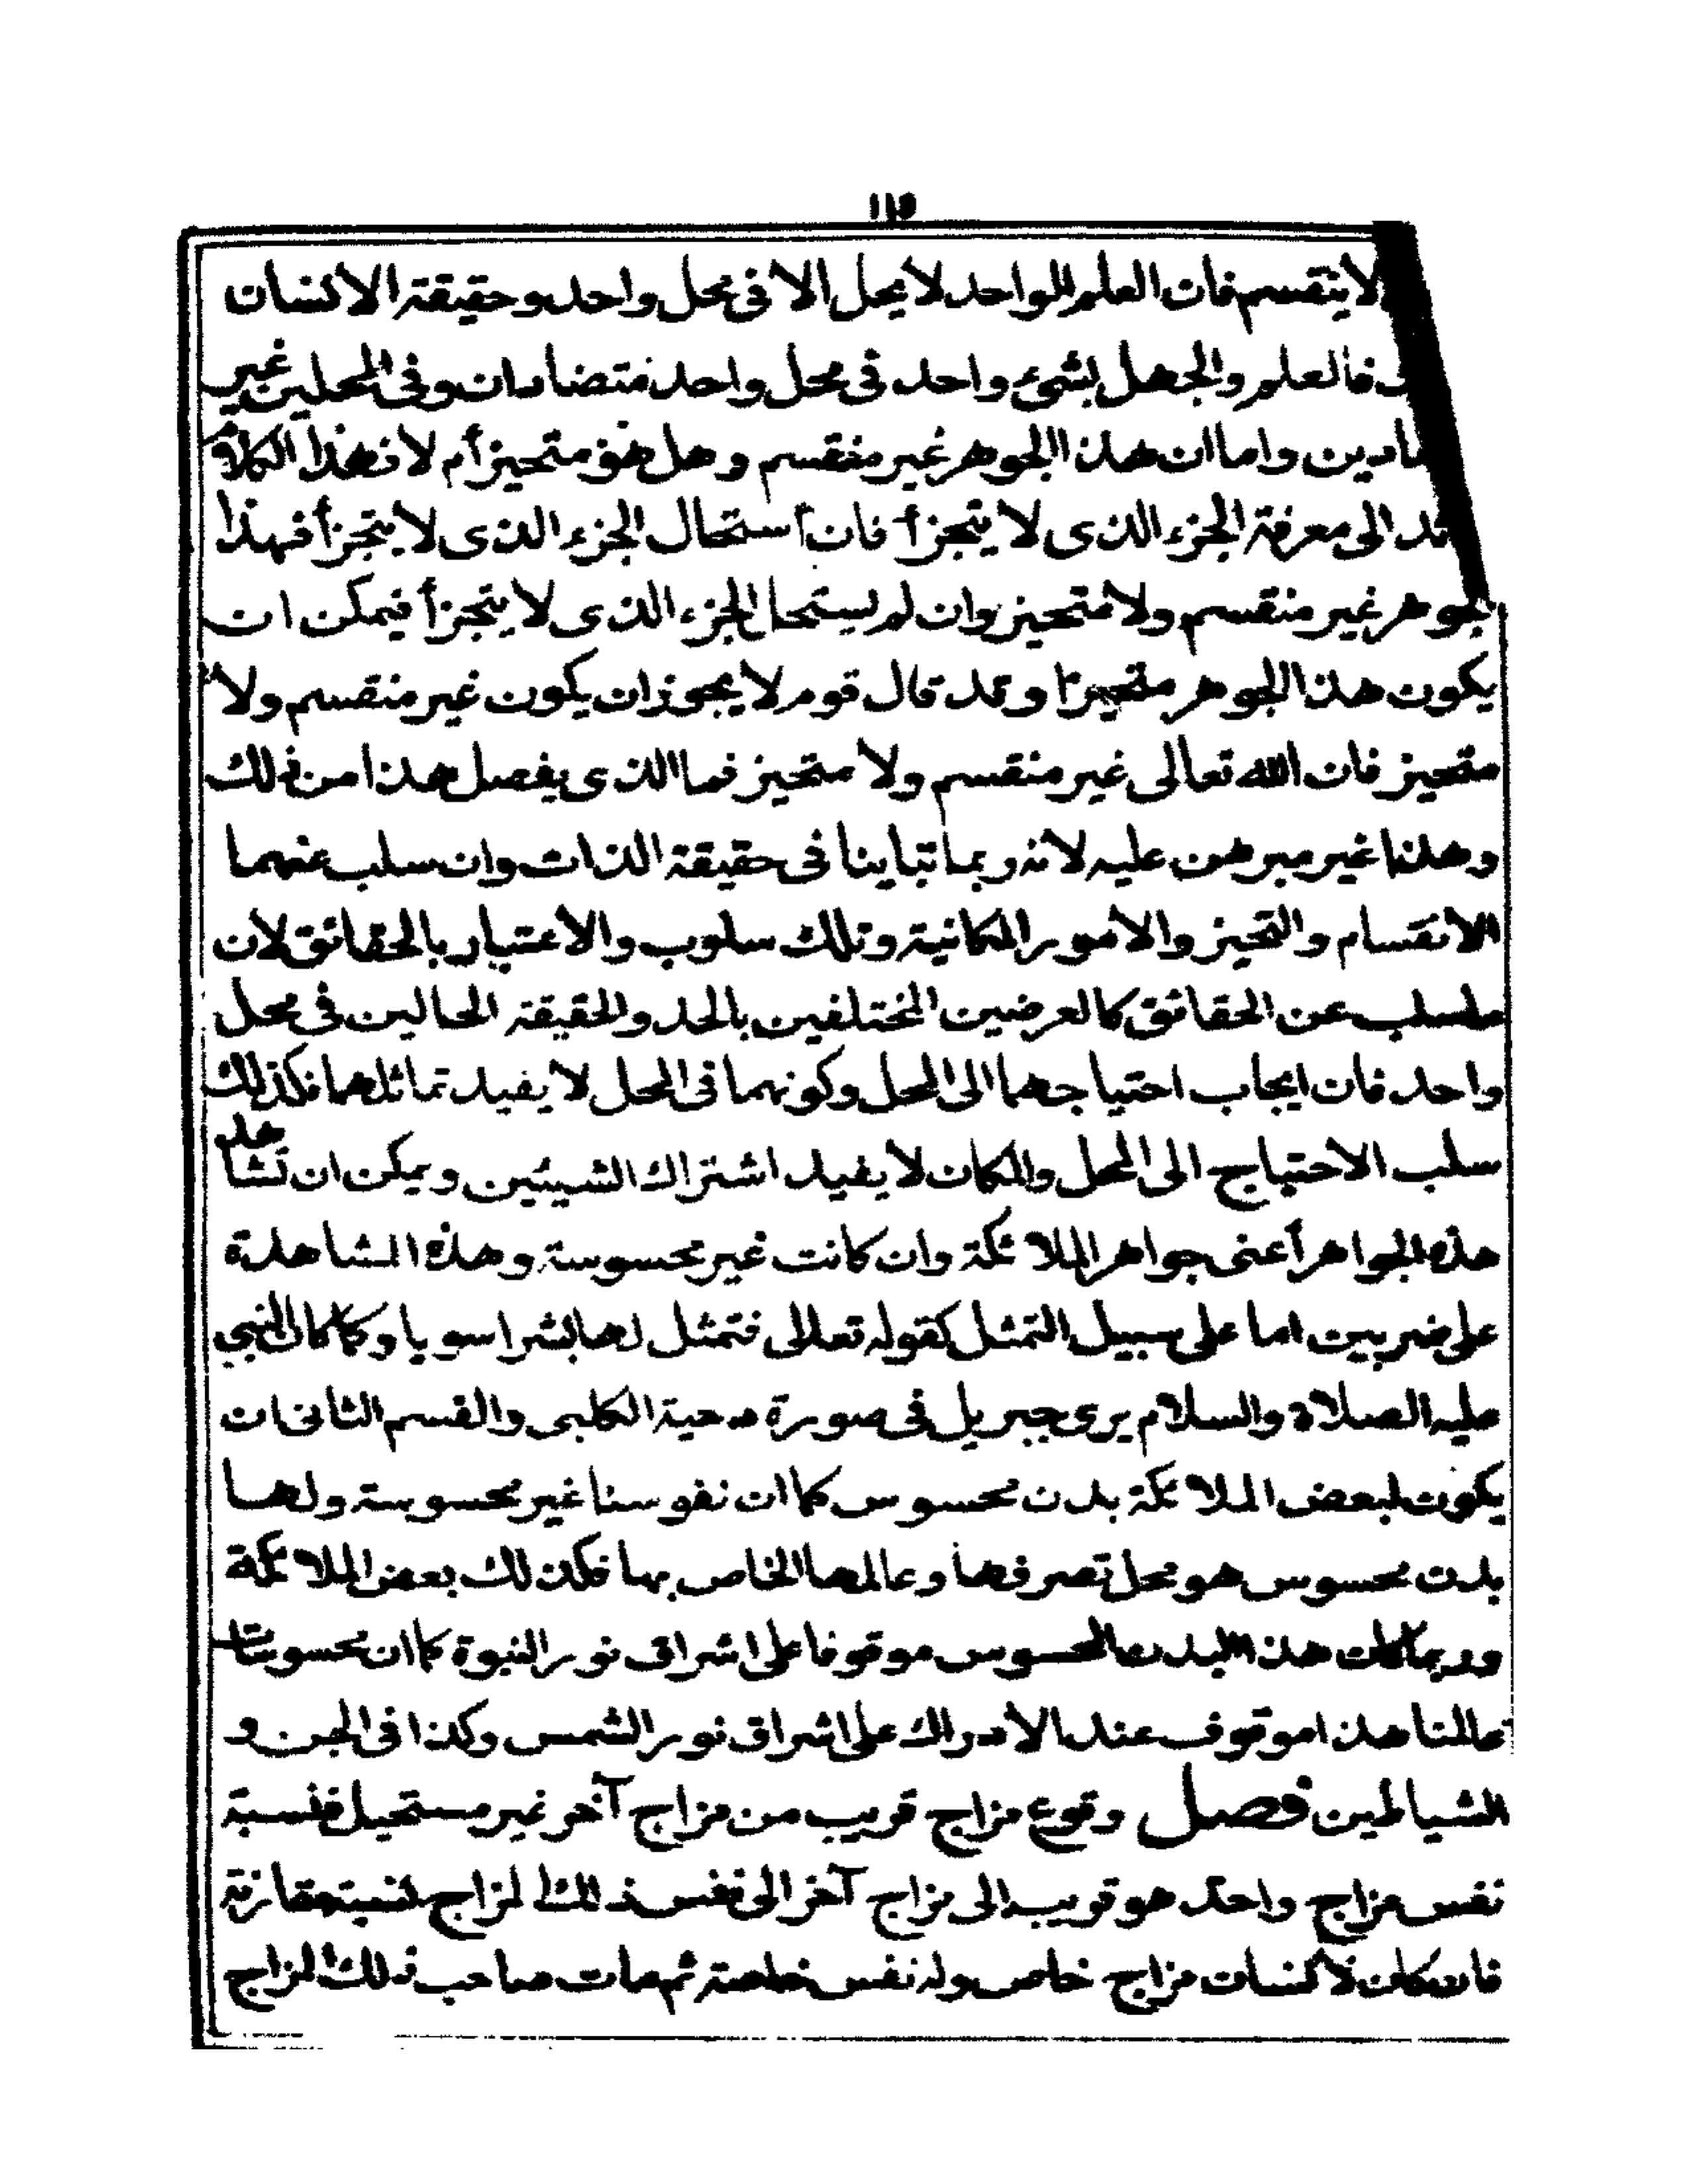 ١١٥
لا ينقسم فان العلم الواحد لا يحل الا فى محل واحد وحقيقة الانسان
فالعلم والجهل بشىء واحد فى محل واحد متضادان وفى المحلين غير
واما ان هذا الجوهر غير منقسم وهل هو متحيز أم لا فهذا الكلام
الى معرفة الجزء الذى لا يتجزأ فان استحال الجزء الذى لا يتجزأ فهذا
الجوهر غير منقسم ولا متحيز وان لم يستحل الجزء الذى لا يتجزأ فيمكن ان
يكون هذا الجوهر متحيزا وقد قال قوم لا يجوز ان يكون غير منقسم ولا
متحيز فان الله تعالى غير منقسم ولا متحيز فما الذى يفصل هذا من ذلك
وهذا غير مبرهن عليه لانه ربما تباينا فى حقيقة الذات وان سلب عنهما
الانقسام والتحيز والامور المكانية وتلك سلوب والاعتبار بالحقائق لان
ما سلب عن الحقائق كالعرضين المختلفين بالحد والحقيقة الحالين فى محل
واحد فان ايجاب احتياجهما الى المحل وكونهما فى المحل لا يفيد تماثلهما فكذلك
سلب الاحتياج الى المحل والمكان لا يفيد اشتراك الشيئين ويمكن ان تشاهد
هذه الجواهر أعنى جواهر الملائكة وان كانت غير محسوسة وهذه المشاهدة
على ضربين اما على سبيل التمثل كقوله تعالى فتمثل لها بشرا سويا وكما كان النبى
عليه الصلاة والسلام يرى جبريل فى صورة دحية الكلبى والقسم الثانى ان
يكون لبعض الملائكة بدن محسوس كما ان نفوسنا غير محسوسة ولها
بدن محسوس هو محل تصرفها وعالمها الخاص بها فكذلك بعض الملائكة
وربما كان هذا البدن المحسوس موقوفا على اشراق نور النبوة كما ان محسوسات
عالمنا هذا موقوف عند الادراك على اشراق نور الشمس وكذا فى الجن و
الشياطين فصل وقوع مزاج قريب من مزاج آخر غير مستحيل فنسبة
نفس مزاج واحد هو قريب الى مزاج آخر الى نفس ذلك المزاج لنسبة مقارنة
فان كان لانسان مزاج خاص وله نفس خاصة ثم مات صاحب ذلك المزاج